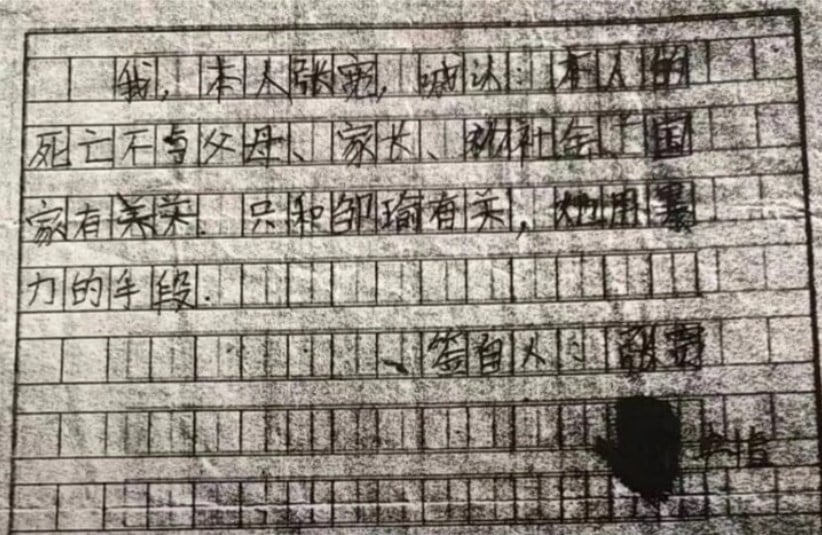 我,本人张宽,诚认:本人的
死亡不与父母、家长、社会、国
家有关. 只和邹瑜有关, 她用暴
力的手段.
签自人:张宽